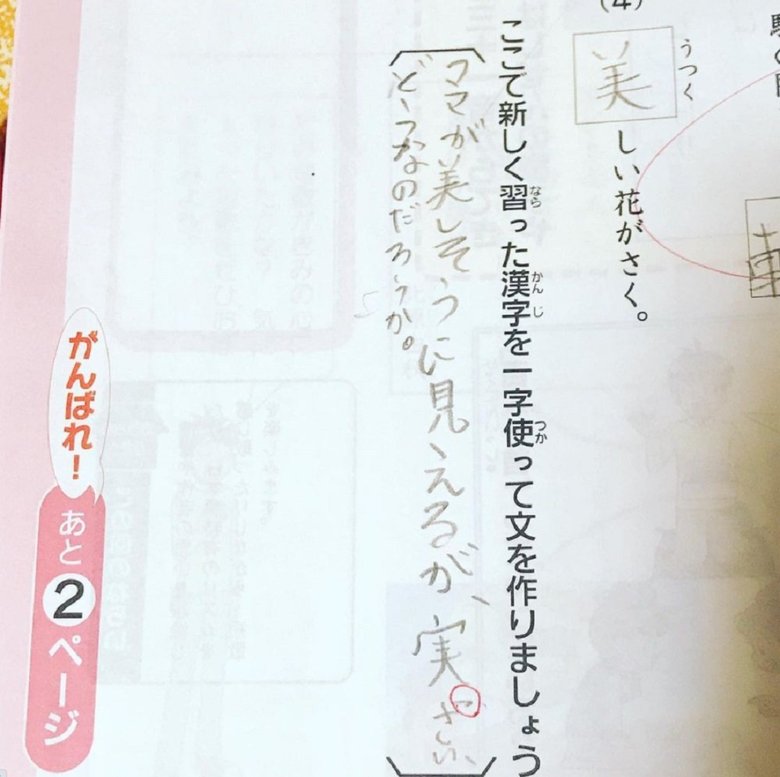 (4)
うつく
美しい花がさく。
なら かん じ つか
ここで新しく習った漢字を一字使って文を作りましょう
ママが美しそうに見えるが、実さい、
どうなのだろうか。
がんばれ！
あと2ページ